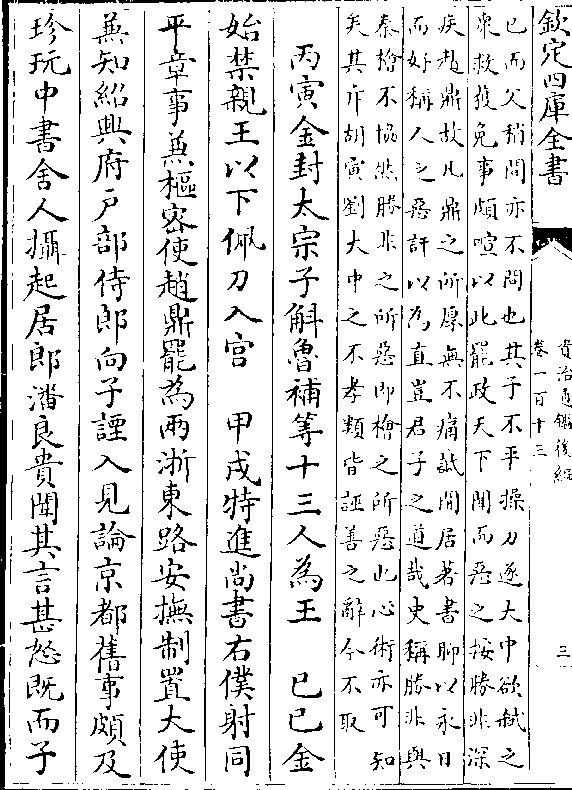 欽定四庫全書
資治通鑑後編
卷一百十三
三
已而父稍聞亦不問也其子不平操刀逐大中欲弒之
衆救獲免事頗喧以此罷政天下聞而惡之按勝非深
疾趙鼎故凡鼎之所厚無不痛詆閒居著書聊以永日
而好稱人之惡訐以為直豈君子之道哉史稱勝非與
秦檜不協然勝非之所惡即檜之所惡此心術亦可知
矣其斥胡寅劉大中之不孝類皆誣善之辭今不取
丙寅金封太宗子斛魯補等十三人為王　己巳金
始禁親王以下佩刀入宮　甲戌特進尚書右僕射同
平章事兼樞密使趙鼎罷為兩浙東路安撫制置大使
兼知紹興府戶部侍郎向子諲入見論京都舊事頗及
珍玩中書舍人攝起居郎潘良貴聞其言甚怒既而子